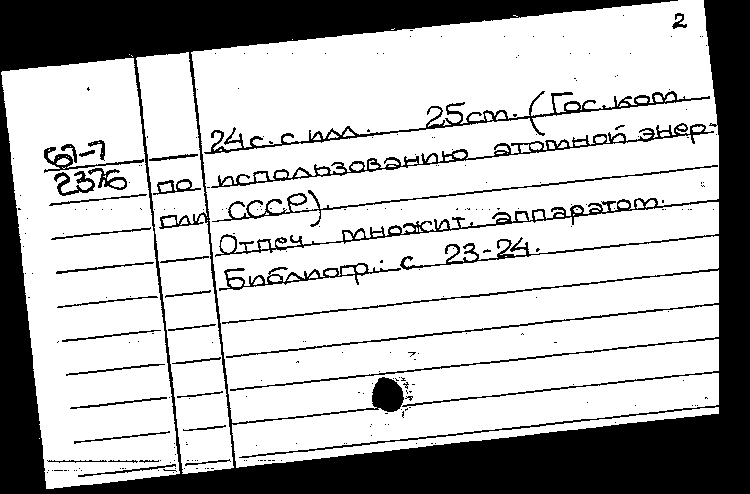 2
24 с. с илл. 25 см. (Гос. ком.
67-7
2376
по использованию атомной энер-
гии СССР).
Отпеч. множит. аппаратом.
Библиогр.: с. 23-24.